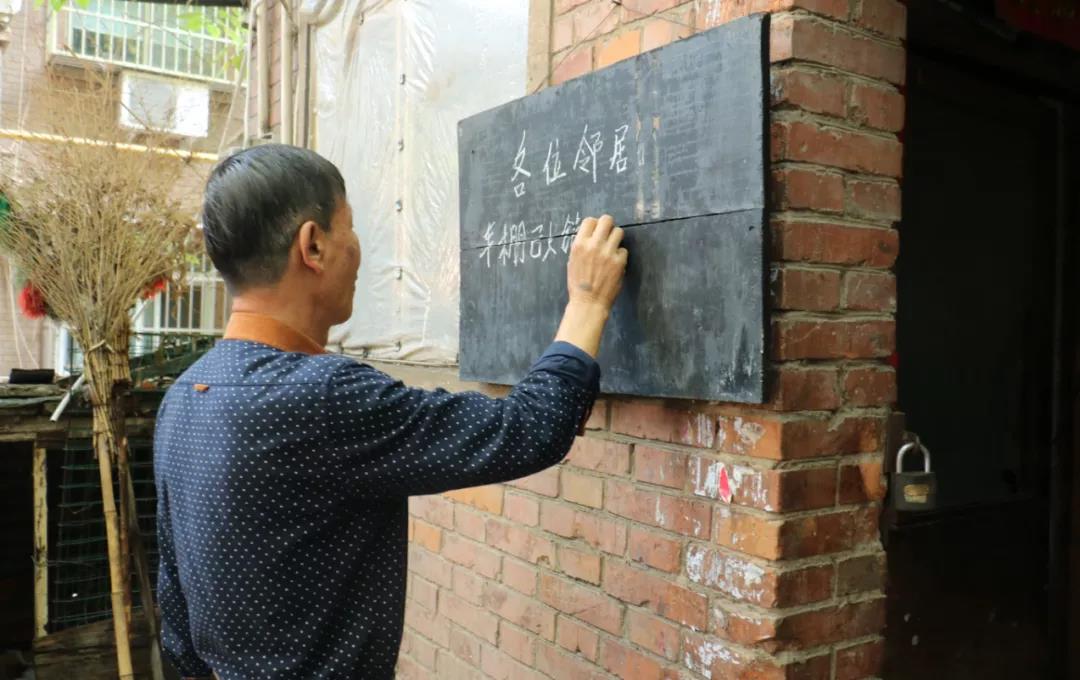 各位邻居
车棚已